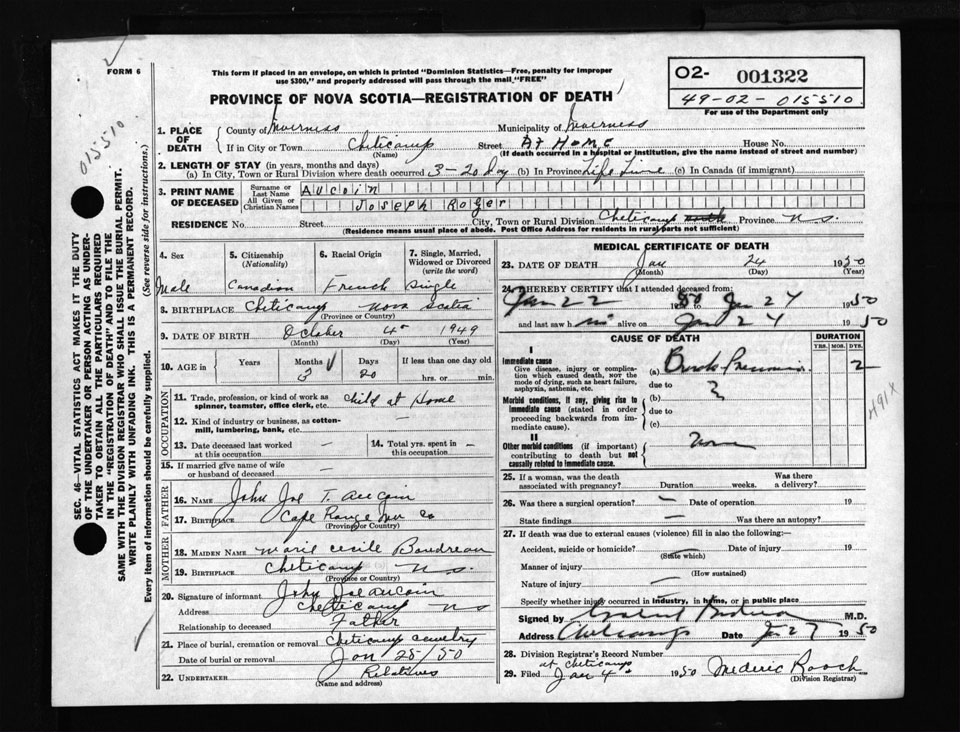 FORM 6
This form if placed in an envelope, on which is printed "Dominion Statistics—Free, penalty for improper
use $300," and properly addressed will pass through the mail "FREE"
O2- 001322
49-02-015510
For use of the Department only
PROVINCE OF NOVA SCOTIA—REGISTRATION OF DEATH
015510
SEC. 46—VITAL STATISTICS ACT MAKES IT THE DUTY
OF THE UNDERTAKER OR PERSON ACTING AS UNDER-
TAKER TO OBTAIN ALL THE PARTICULARS REQUIRED
IN THE "REGISTRATION OF DEATH" AND TO FILE THE
SAME WITH THE DIVISION REGISTRAR WHO SHALL ISSUE THE BURIAL PERMIT.
WRITE PLAINLY WITH UNFADING INK. THIS IS A PERMANENT RECORD.
Every item of information should be carefully supplied. (See reverse side for instructions.)
1. PLACE OF DEATH
County of Inverness Municipality of Inverness
If in City or Town Cheticamp Street At Home House No.
(Name) (If death occurred in a hospital or institution, give the name instead of street and number)
2. LENGTH OF STAY (in years, months and days)
(a) In City, Town or Rural Division where death occurred 3-20 day (b) In Province Life Time (c) In Canada (if immigrant)
3. PRINT NAME OF DECEASED
Surname or Last Name Aucoin
All Given or Christian Names Joseph Roger
RESIDENCE No. Street City, Town or Rural Division Cheticamp Province N.S.
(Residence means usual place of abode. Post Office Address for residents in rural parts not sufficient)
4. Sex 5. Citizenship (Nationality) 6. Racial Origin 7. Single, Married, Widowed or Divorced (write the word)
Male Canadian French Single
8. BIRTHPLACE Cheticamp Nova Scotia
(Province or Country)
9. DATE OF BIRTH October 4 1949
(Month) (Day) (Year)
10. AGE in Years Months Days If less than one day old
3 20 hrs. or min.
OCCUPATION
11. Trade, profession, or kind of work as spinner, teamster, office clerk, etc. Child at Home
12. Kind of industry or business, as cotton-mill, lumbering, bank, etc.
13. Date deceased last worked at this occupation — 14. Total yrs. spent in this occupation —
15. If married give name of wife or husband of deceased —
FATHER
16. NAME John Joe T. Aucoin
17. BIRTHPLACE Cape Rouge Inv Co
(Province or Country)
MOTHER
18. MAIDEN NAME Marie Cecile Boudreau
19. BIRTHPLACE Cheticamp N.S.
(Province or Country)
20. Signature of informant John Joe Aucoin
Address Cheticamp NS
Relationship to deceased Father
21. Place of burial, cremation or removal Cheticamp Cemetery
Date of burial or removal Jan 25/50
22. UNDERTAKER Relatives
(Name and address)
MEDICAL CERTIFICATE OF DEATH
23. DATE OF DEATH Jan 24 1950
(Month) (Day) (Year)
24. I HEREBY CERTIFY that I attended deceased from:
Jan 22 1950 to Jan 24 1950
and last saw him alive on Jan 24 1950
CAUSE OF DEATH DURATION
YRS. MOS. DYS.
I
Immediate cause
Give disease, injury or complication which caused death, not the mode of dying, such as heart failure, asphyxia, asthenia, etc.
(a) 2
due to
Morbid conditions, if any, giving rise to immediate cause (stated in order proceeding backwards from immediate cause).
(b) ?
due to
(c)
491X
II
Other morbid conditions (if important) contributing to death but not causally related to immediate cause.
None
25. If a woman, was the death associated with pregnancy? Duration weeks. Was there a delivery?
26. Was there a surgical operation? — Date of operation 19
State findings — Was there an autopsy?
27. If death was due to external causes (violence) fill in also the following:
Accident, suicide or homicide? Date of injury 19
(State which)
Manner of injury
(How sustained)
Nature of injury —
Specify whether injury occurred in industry, in home, or in public place
Signed by M.D.
Address Cheticamp Date Jan 27 1950
28. Division Registrar's Record Number
at Cheticamp
29. Filed Jan 1950 Mederic Roach
(Division Registrar)